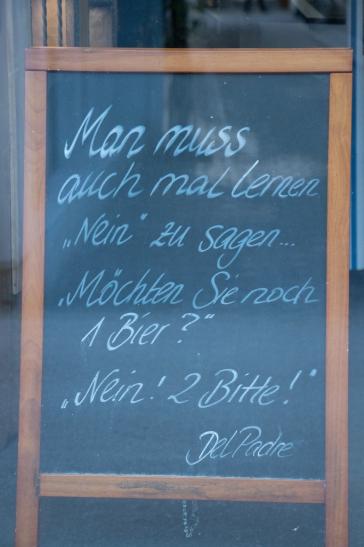 Man muss
auch mal lernen
„Nein“ zu sagen...
„Möchten Sie noch
1 Bier?“
„Nein! 2 Bitte!“
Del Padre